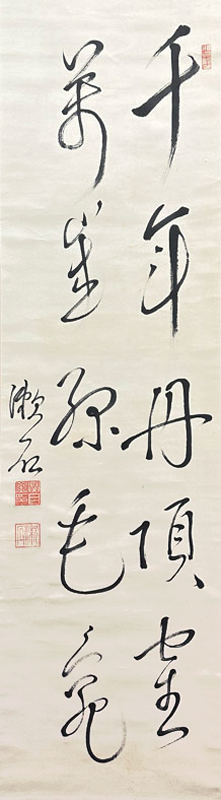 千年丹頂寉
萬歳緑毛亀
漱石